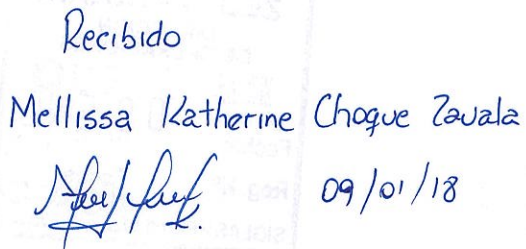 Recibido
Mellissa Katherine Choque Zavala
09/01/18